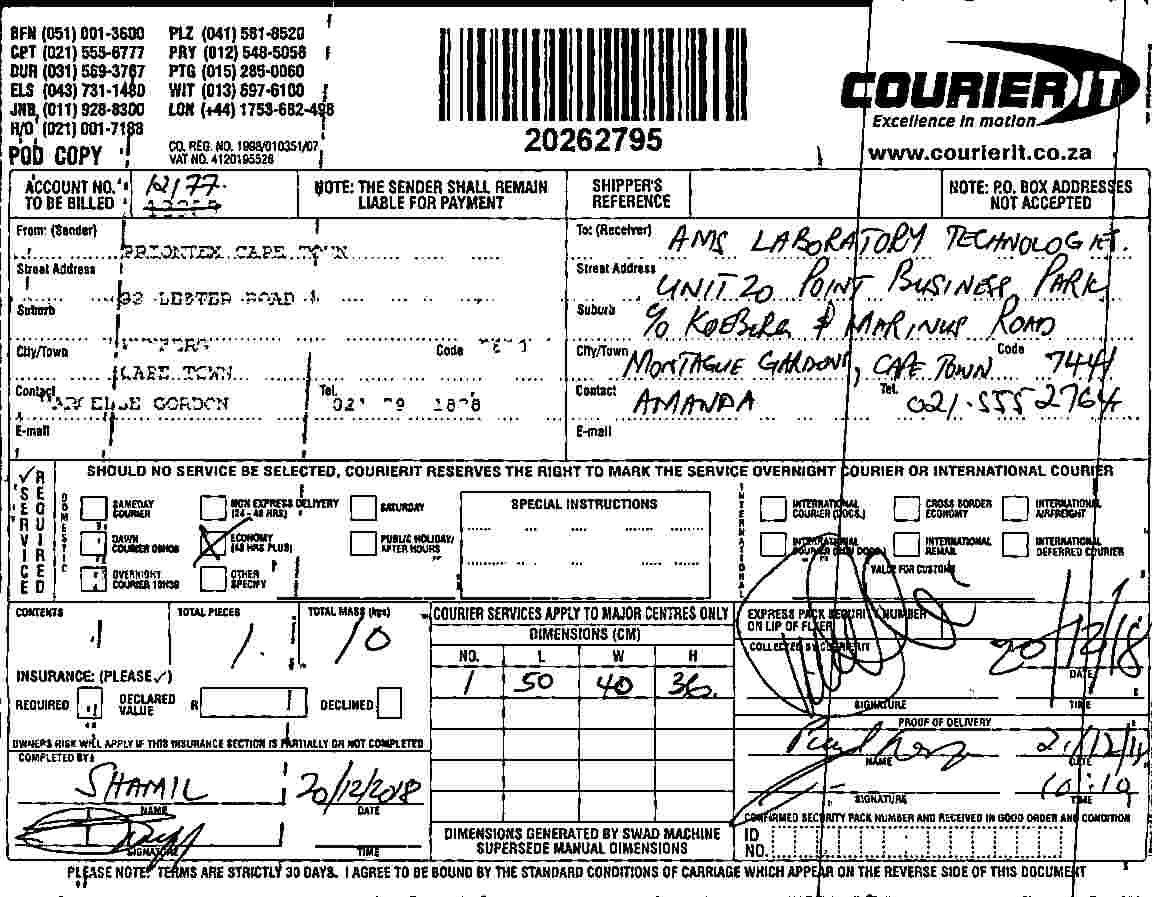 BFN (051) 001-3600 PLZ (041) 581-8520
CPT (021) 555-6777 PRY (012) 548-5058
DUR (031) 569-3767 PTG (015) 285-0060
ELS (043) 731-1480 WIT (013) 697-6100
JNB (011) 928-8300 LON (+44) 1753-682-498
H/O (021) 001-7188
POD COPY
CO. REG. NO. 1998/010351/07
VAT NO. 4120195526
20262795
COURIER IT
Excellence in motion
www.courierit.co.za
ACCOUNT NO. TO BE BILLED 12177
NOTE: THE SENDER SHALL REMAIN LIABLE FOR PAYMENT
SHIPPER'S REFERENCE
NOTE: P.O. BOX ADDRESSES NOT ACCEPTED
From: (Sender) PRIONTEX CAPE TOWN
Street Address 93 LESTER ROAD
Suburb
City/Town CAPE TOWN Code
Contact GORDON Tel.
E-mail
To: (Receiver) AMS LABORATORY TECHNOLOGIES.
Street Address UNIT 20 POINT BUSINESS PARK
Suburb C/O KOEBERG & MARINUS ROAD
City/Town MONTAGUE GARDENS, CAPE TOWN Code 7441
Contact AMANDA Tel. 021.555 2764
E-mail
SHOULD NO SERVICE BE SELECTED, COURIERIT RESERVES THE RIGHT TO MARK THE SERVICE OVERNIGHT COURIER OR INTERNATIONAL COURIER
SERVICE REQUIRED
DOMESTIC
SAMEDAY COURIER
NON EXPRESS DELIVERY (24 - 48 HRS)
SATURDAY
DAWN COURIER 09H00
ECONOMY (48 HRS PLUS)
PUBLIC HOLIDAY/ AFTER HOURS
OVERNIGHT COURIER 10H30
OTHER SPECIFY
SPECIAL INSTRUCTIONS
INTERNATIONAL
INTERNATIONAL COURIER (DOCS.)
CROSS BORDER ECONOMY
INTERNATIONAL AIRFREIGHT
INTERNATIONAL COURIER (NON DOCS)
INTERNATIONAL REMAIL
INTERNATIONAL DEFERRED COURIER
VALUE FOR CUSTOMS
CONTENTS 1
TOTAL PIECES 1.
TOTAL MASS (kgs) 10
INSURANCE: (PLEASE ✓)
REQUIRED
DECLARED VALUE R
DECLINED
OWNERS RISK WILL APPLY IF THIS INSURANCE SECTION IS PARTIALLY OR NOT COMPLETED
COMPLETED BY:
SHAMIL 20/12/2018
NAME DATE
SIGNATURE TIME
COURIER SERVICES APPLY TO MAJOR CENTRES ONLY
DIMENSIONS (CM)
NO. L W H
1 50 40 36.
DIMENSIONS GENERATED BY SWAD MACHINE SUPERSEDE MANUAL DIMENSIONS
EXPRESS PACK SECURITY NUMBER ON LIP OF FLYER
COLLECTED BY COURIERIT
20/12/18
DATE
SIGNATURE TIME
PROOF OF DELIVERY
NAME DATE
10:19
SIGNATURE TIME
CONFIRMED SECURITY PACK NUMBER AND RECEIVED IN GOOD ORDER AND CONDITION
ID NO.
PLEASE NOTE: TERMS ARE STRICTLY 30 DAYS. I AGREE TO BE BOUND BY THE STANDARD CONDITIONS OF CARRIAGE WHICH APPEAR ON THE REVERSE SIDE OF THIS DOCUMENT